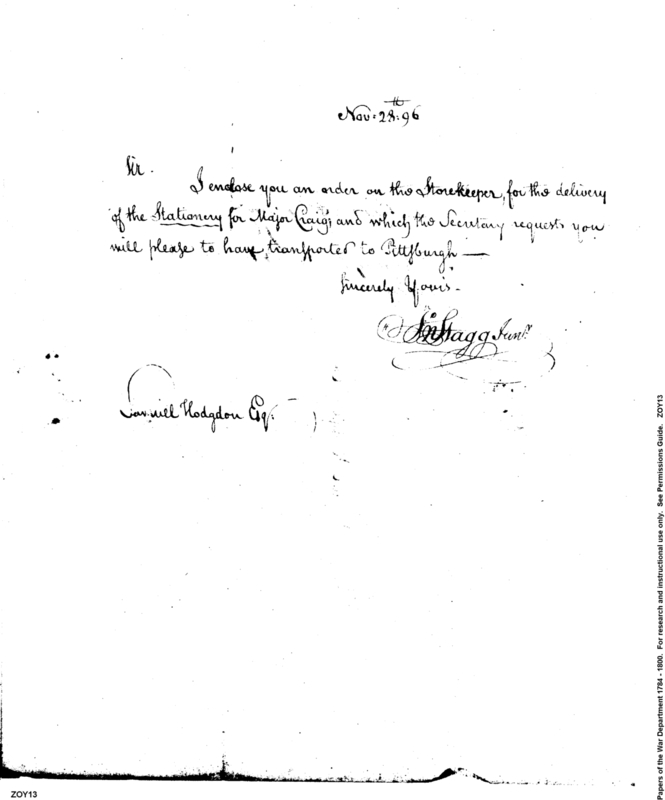 Nov: 28th: 96
Sir.
I enclose you an order on the Storekeeper, for the delivery
of the Stationery for Major Craig, and which the Secretary requests you
will please to have transported to Pittsburgh —
Sincerely Yours.
Jno Stagg Junr.
Samuel Hodgdon Esq.
Papers of the War Department 1784 - 1800. For research and instructional use only. See Permissions Guide. ZOY13
ZOY13